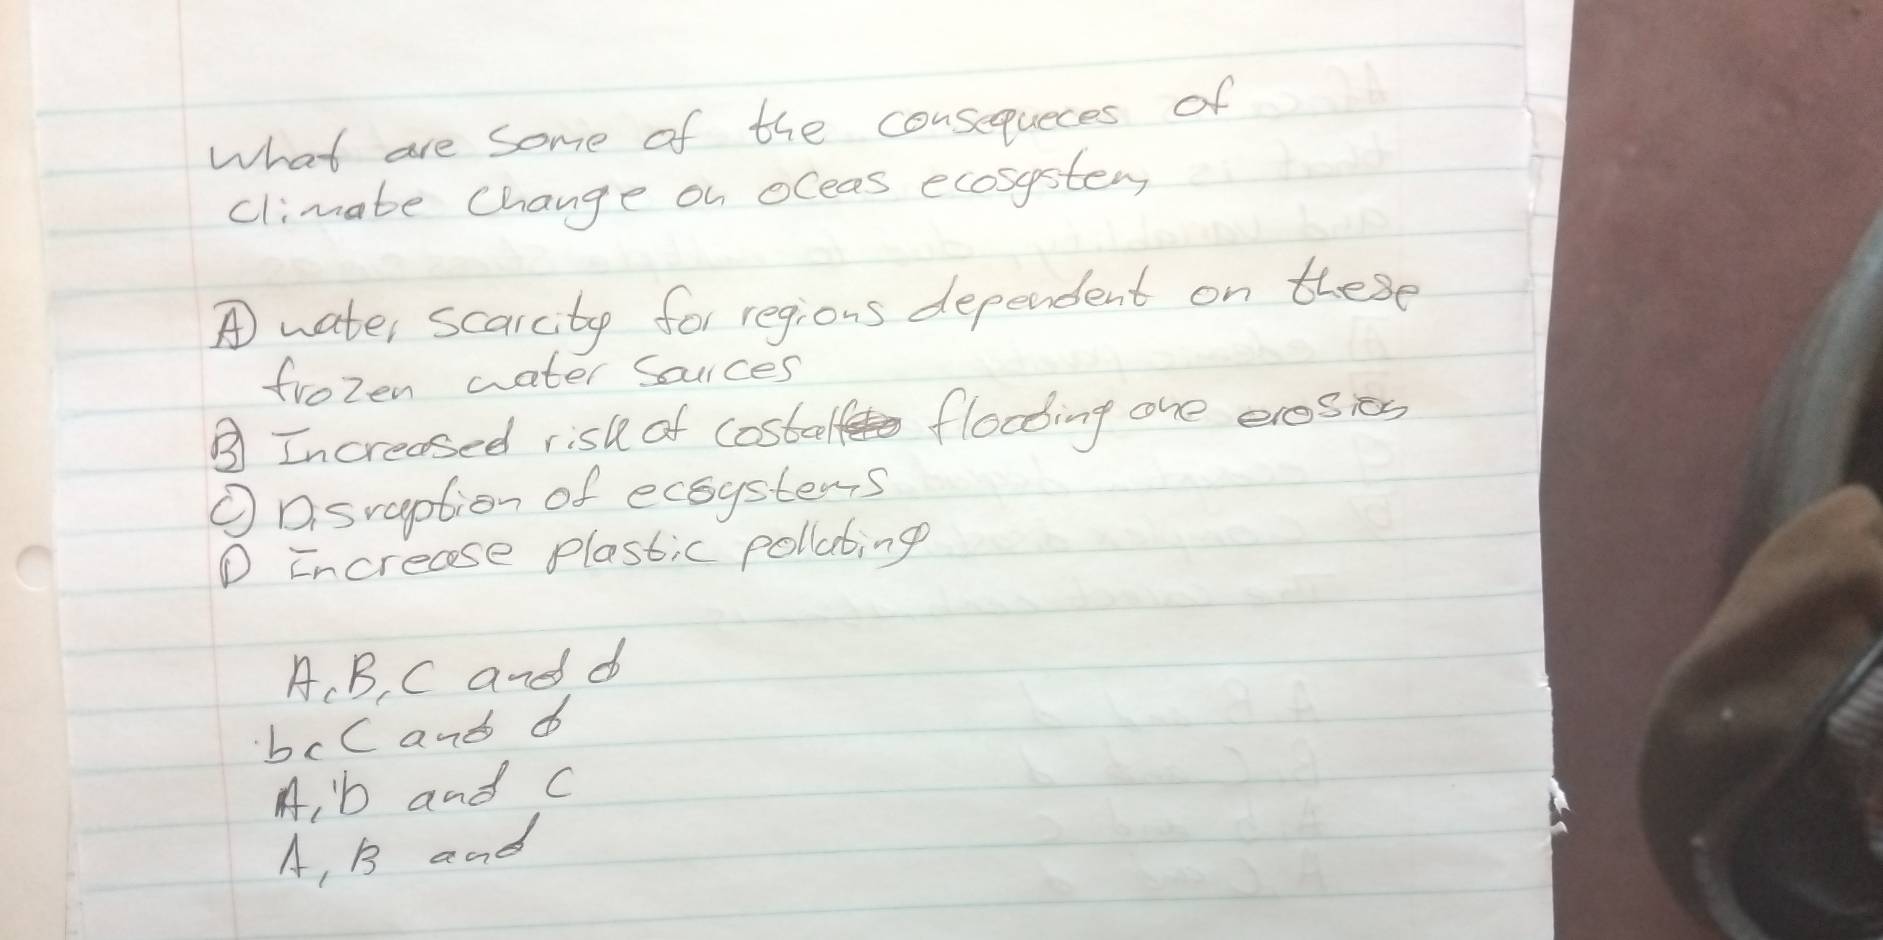 What are some of the consequeces of
climate change on oceas ecosystem
A water scarcity for regions dependent on these
frozen water sources
B Increased risk of costal flooding one erosion
C Disraption of ecosystems
D Increase plastic polluting
A, B, C and d
b, C and d
A, b and C
A, B and